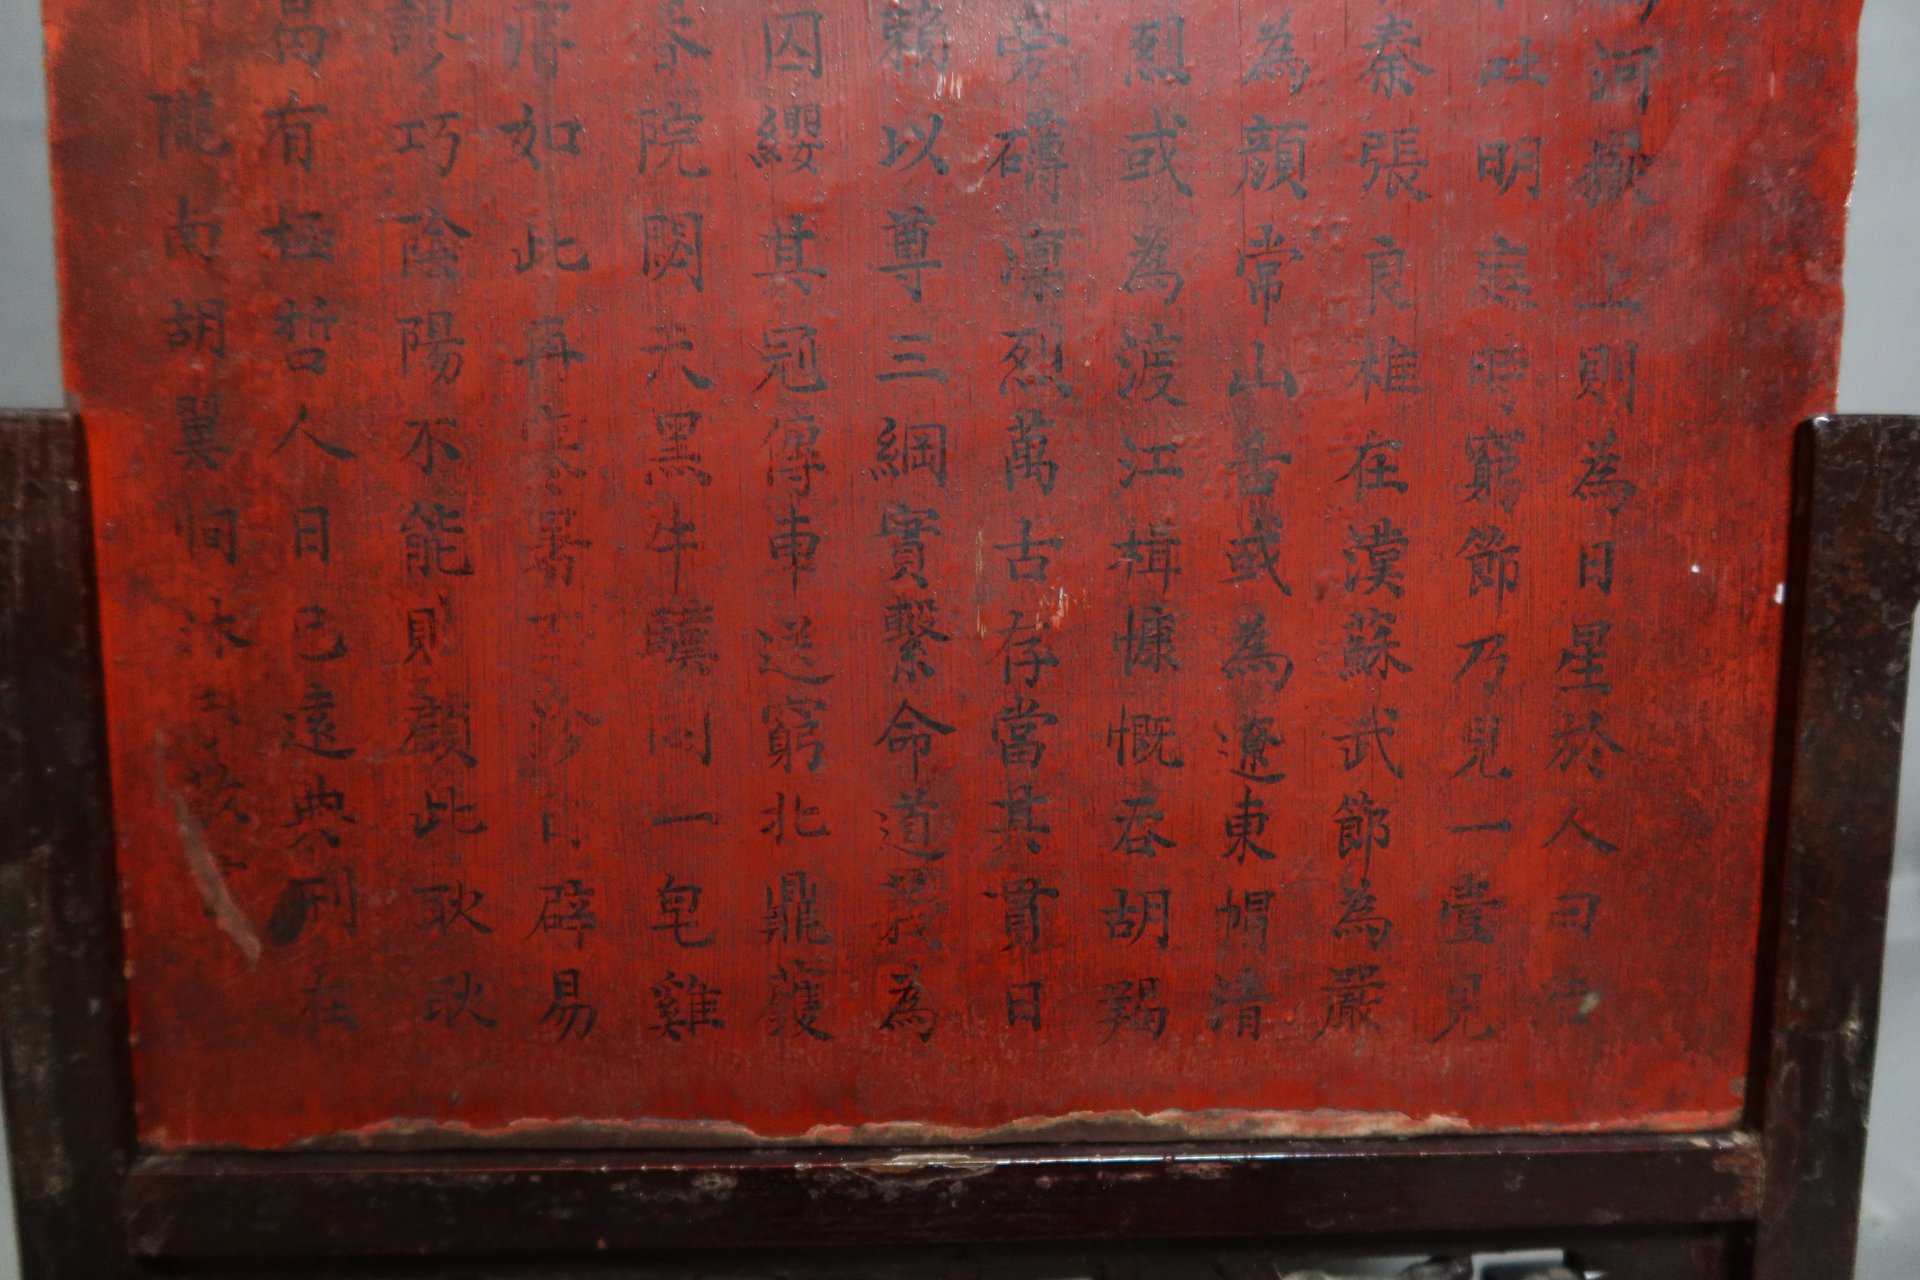 河嶽上則為日星於人曰浩
吐明庭時窮節乃見一壹見
秦張良椎在漢蘇武節為嚴
為顏常山舌或為遼東帽清
烈或為渡江楫慷慨吞胡羯
旁礡凛烈萬古存當其貫日
賴以尊三綱實繫命道義為
囚纓其冠傳車送窮北鼎鑊
院閟天黑牛驥同一皂雞
瘠如此再寒暑百沴自辟易
巧陰陽不能則顧此耿耿
曷有極哲人日已遠典刑在
隴南胡翼恫沐